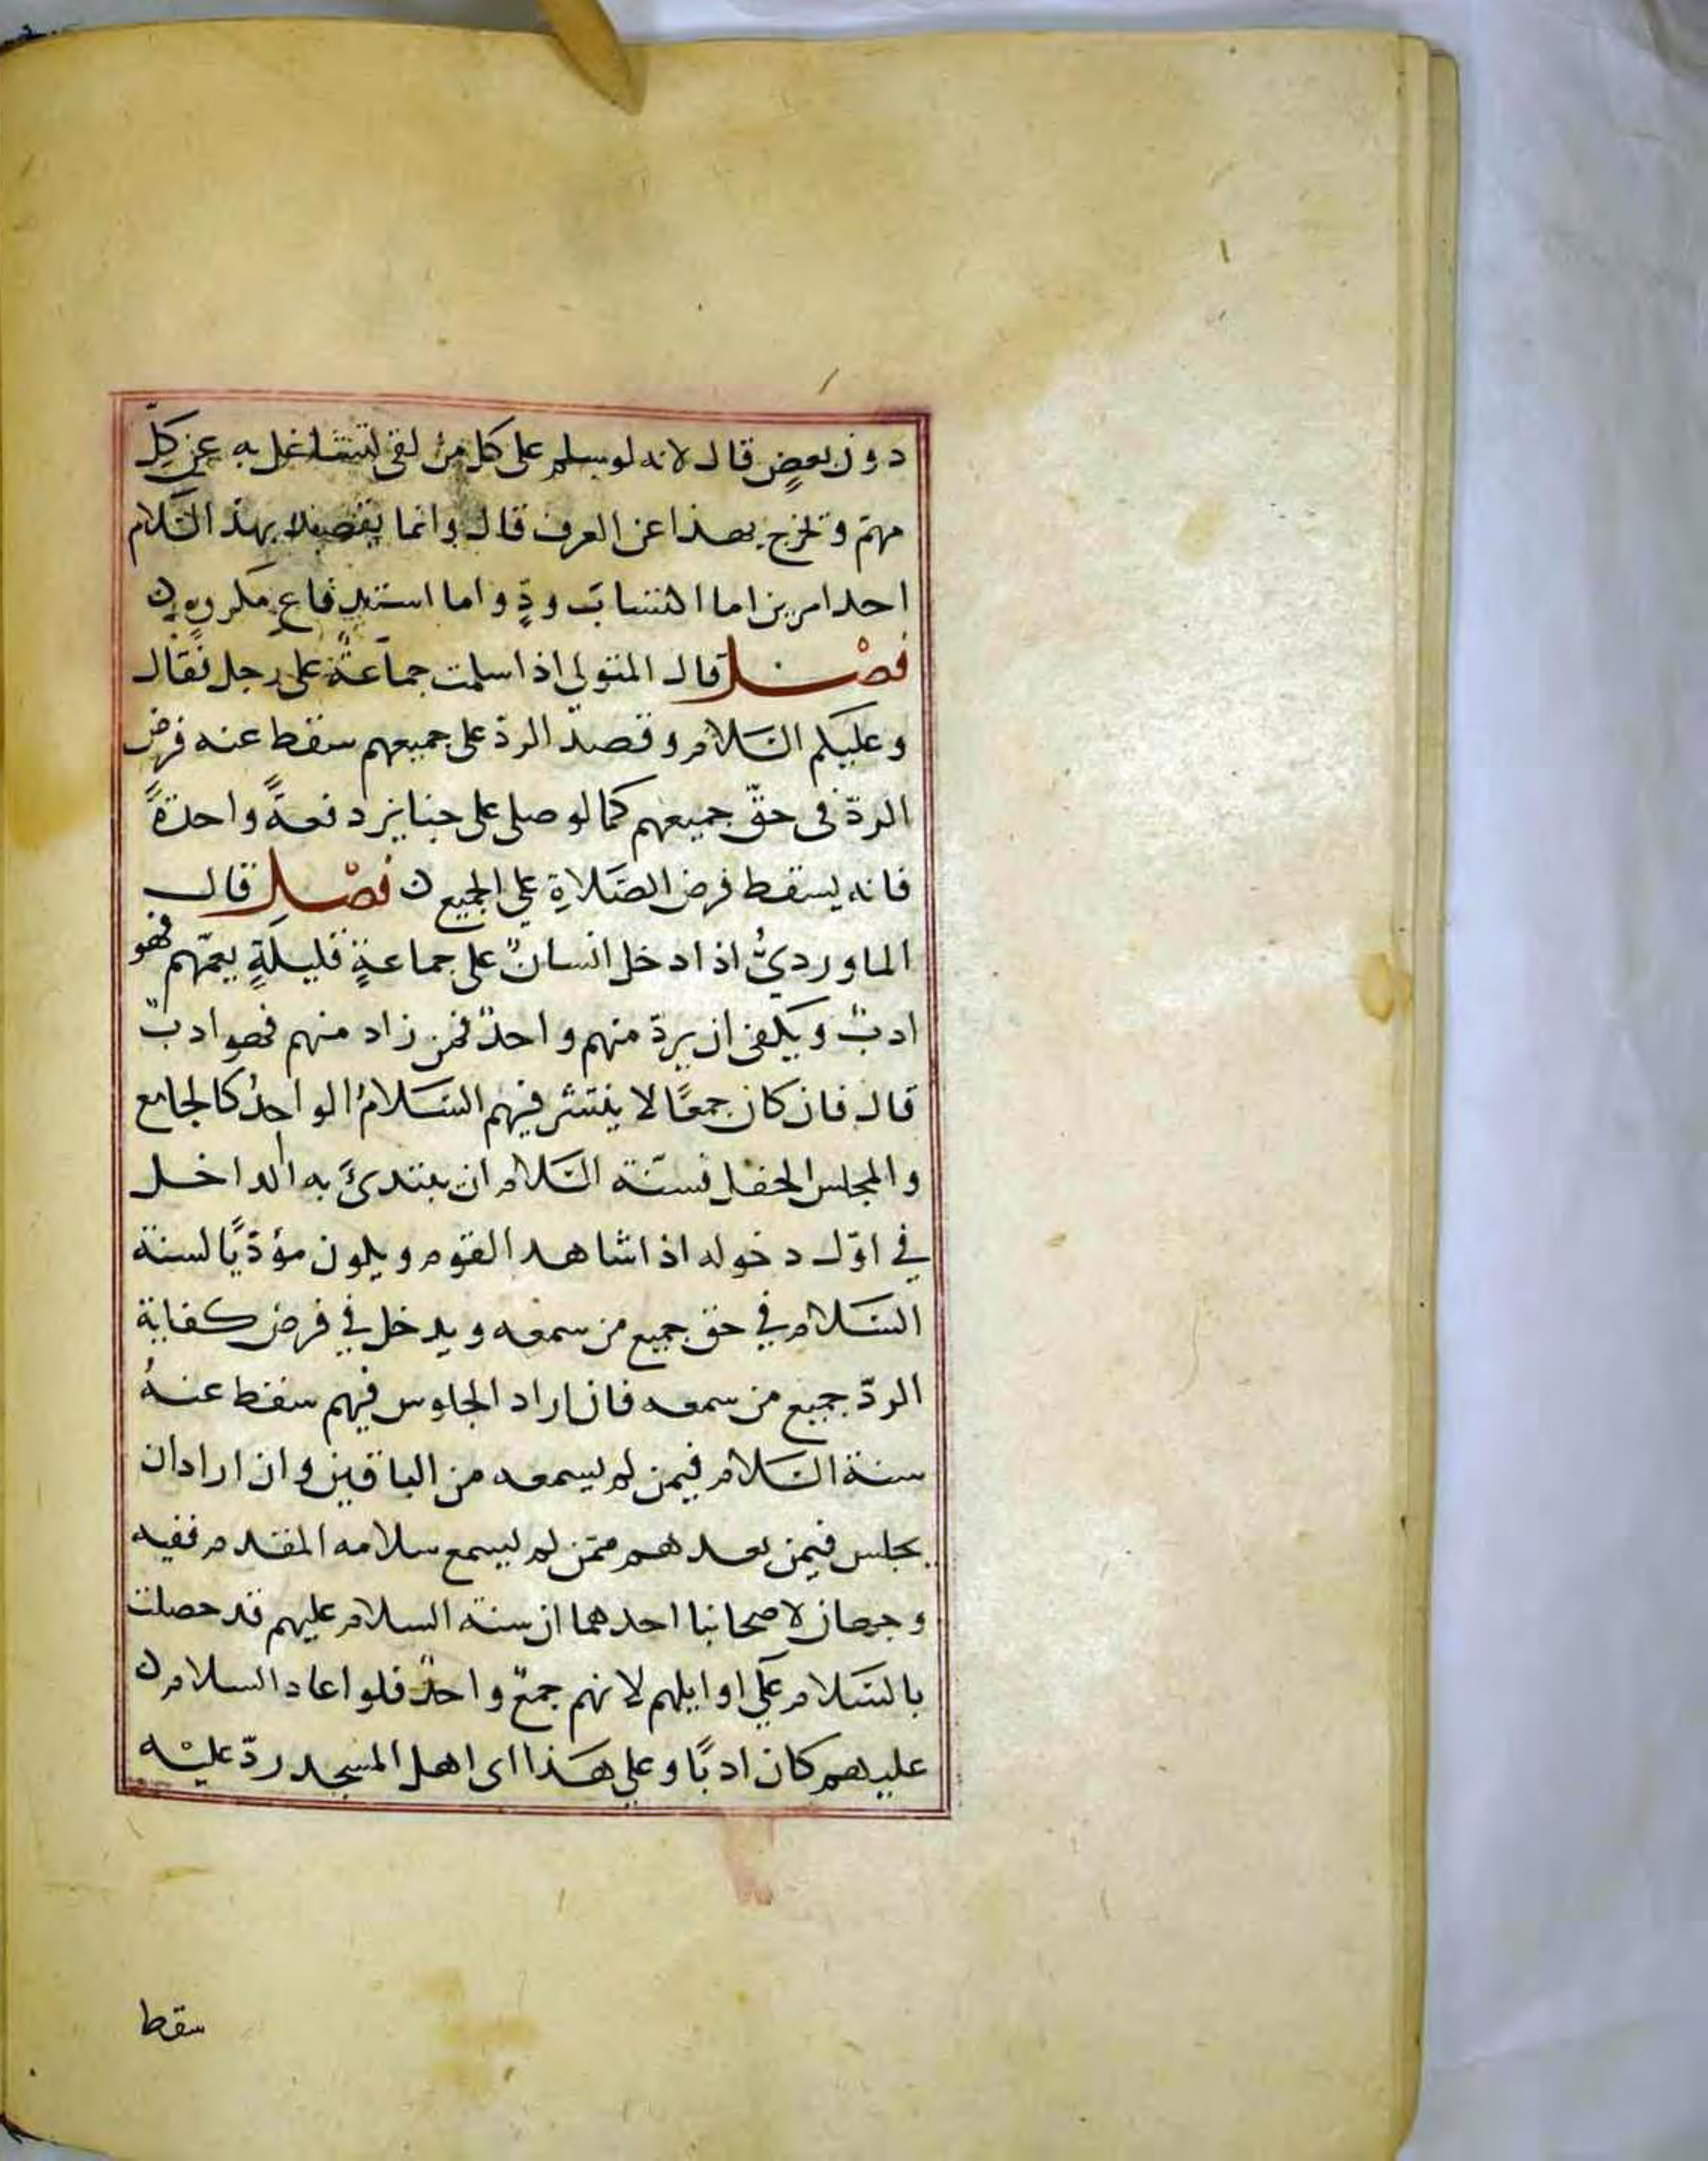 دون بعضٍ قال لانه لو سلم على كل من لقى لتشاغل به عن كلّ
مهمّ وتخرج بهذا عن العرف قال وانما يقصد بهذ السّلام
احد امرين اما اكتساب ودٍّ واما استدفاع مكروهٍ ن
فصْل قال المتولي اذا سلمت جماعةٌ على رجل فقال
وعليكم السَّلام وقصد الردّ على جميعهم سقط عنه فرض
الردّ فى حقّ جميعهم كما لو صلى على جنايز دفعةً واحدةً
فانه يسقط فرض الصَّلاةِ على الجميع ن فصْل قال
الماورديُّ اذا دخل انسانٌ على جماعةٍ قليلةٍ يعمّهم فهو
ادبٌ ويكفى ان يردّ منهم واحدٌ فمن زاد منهم فهو ادبٌ
قال فان كان جمعًا لا ينتشر فيهم السَّلامُ الواحدُ كالجامع
والمجلس الحفل فسنّة السَّلام ان يبتدئَ به الداخل
في اوّل دخوله اذا شاهد القوم ويكون مؤدّيًا لسنة
السَّلام في حق جميع من سمعه ويدخل في فرض كفاية
الردّ جميع من سمعه فان اراد الجلوس فيهم سقط عنهُ
سنة السَّلام فيمن لم يسمعه من الباقين وان اراد ان
يجلس فيمن بعدهم ممّن لم يسمع سلامه المقدم ففيه
وجهان لاصحابنا احدهما ان سنة السلام عليهم قد حصلت
بالسَّلام على اوايلهم لانهم جمعٌ واحدٌ فلو اعاد السلام ن
عليهم كان ادبًا وعلى هَذا اى اهل المسجد ردّ عليْه
سقط